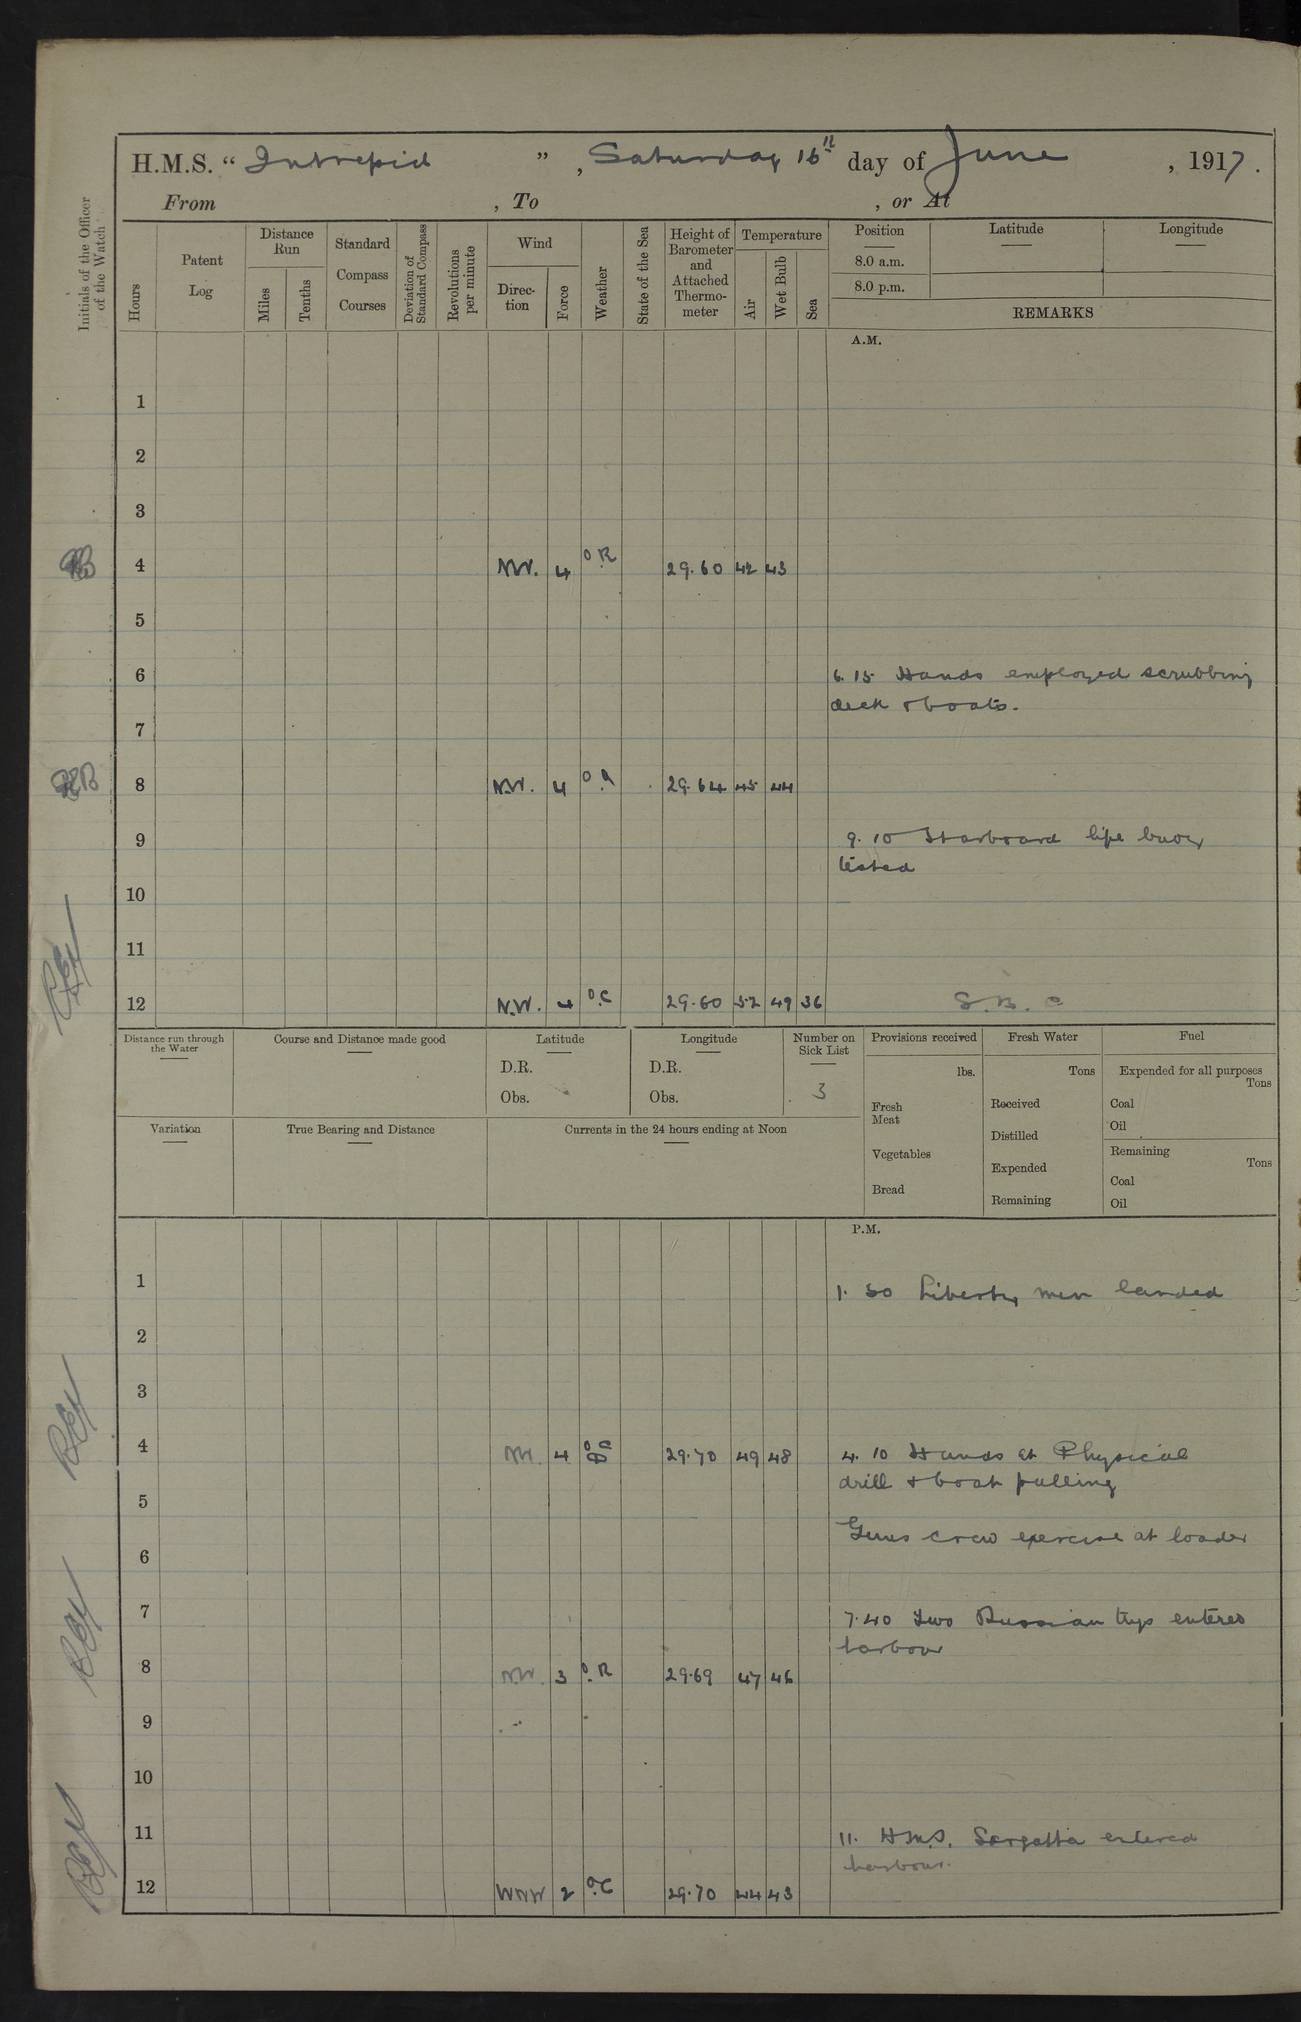 H.M.S. “ Intrepid ” , Saturday 16th day of June , 1917.
From , To , or At
Initials of the Officer of the Watch
Hours
Patent Log
Distance Run
Miles
Tenths
Standard Compass Courses
Deviation of Standard Compass
Revolutions per minute
Wind
Direction
Force
Weather
State of the Sea
Height of Barometer and Attached Thermometer
Temperature
Air
Wet Bulb
Sea
Position
8.0 a.m.
8.0 p.m.
Latitude
Longitude
REMARKS
A.M.
1
2
3
4 NW. 4 O.R 29.60 42 43
5
6 6.15 Hands employed scrubbing
deck & boats.
7
8 N.W. 4 29.64 45 44
9 9.10 Starboard life buoy
tested
10
11
12 N.W. 4 O.C 29.60 52 49 36
Distance run through the Water
Course and Distance made good
Latitude
D.R.
Obs.
Longitude
D.R.
Obs.
Number on Sick List
3
Provisions received
lbs.
Fresh Meat
Vegetables
Bread
Fresh Water
Tons
Received
Distilled
Expended
Remaining
Fuel
Expended for all purposes
Tons
Coal
Oil
Remaining
Tons
Coal
Oil
Variation
True Bearing and Distance
Currents in the 24 hours ending at Noon
P.M.
1 1.30 Liberty men landed
2
3
4 NW. 4 29.70 49 48 4.10 Hands at Physical
drill & boat pulling
5
Guns crew exercise at loader
6
7 7.40 Two Russian tugs entered
harbour
8 N.W. 3 O.R 29.69 47 46
9
10
11 11. H.M.S. entered
harbour.
12 WNW 2 O.C 29.70 44 43